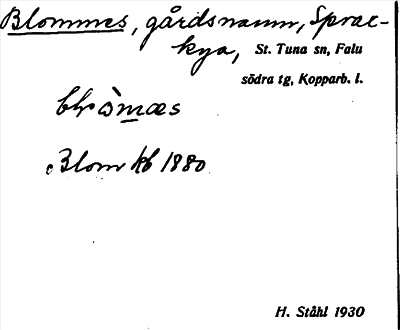 Blommes, gårdsnamn, Sprae-
kya, St. Tuna sn, Falu
södra tg, Kopparb. l.
Blom kb 1880
H. Ståhl 1930